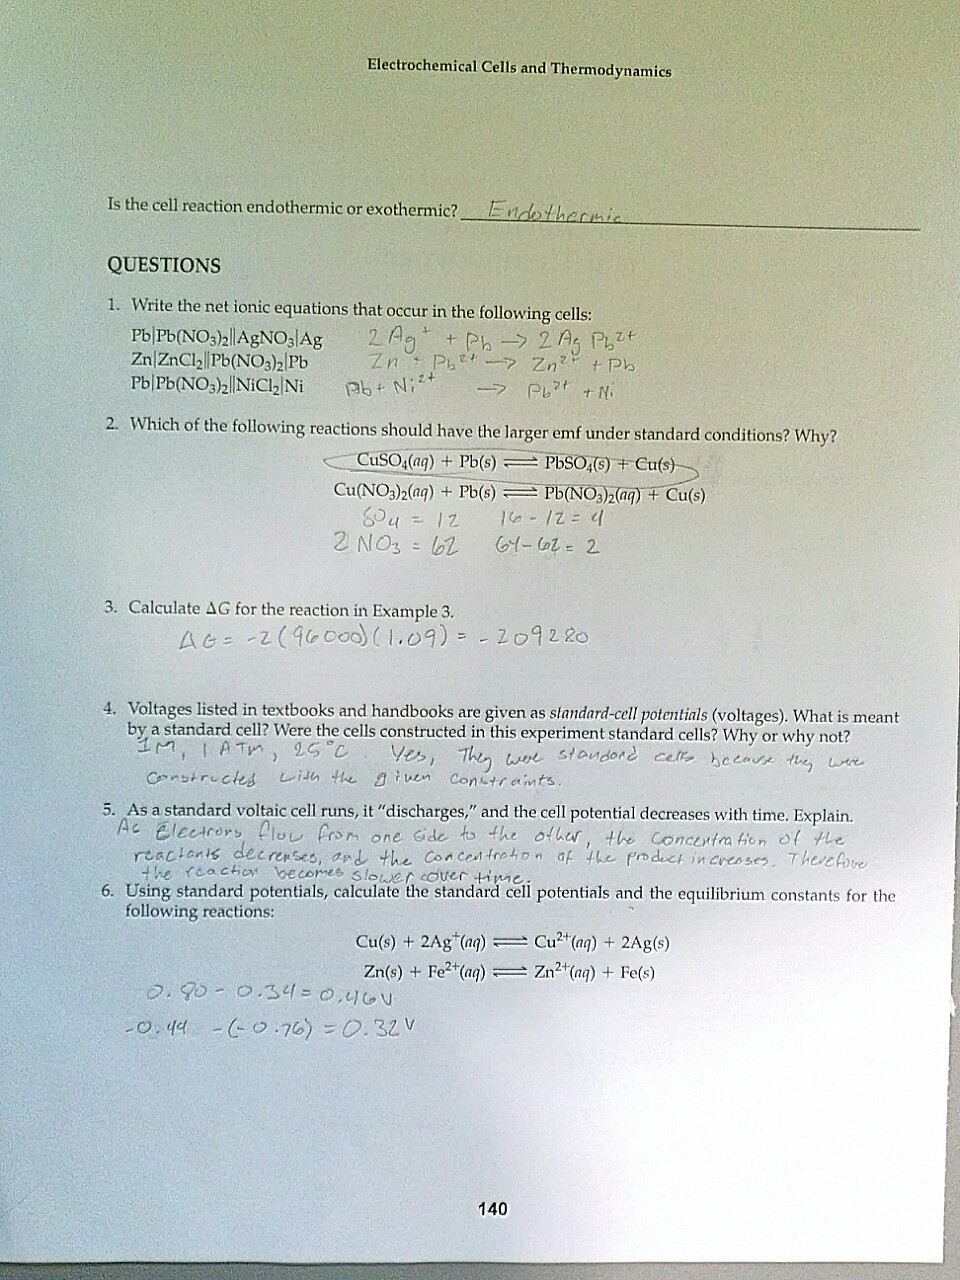 Electrochemical Cells and Thermodynamics
Is the cell reaction endothermic or exothermic? Endothermic
QUESTIONS
1. Write the net ionic equations that occur in the following cells:
Pb|Pb(NO₃)₂||AgNO₃|Ag 2 Ag⁺ + Pb → 2 Ag Pb²⁺
Zn|ZnCl₂||Pb(NO₃)₂|Pb Zn + Pb²⁺ → Zn²⁺ + Pb
Pb|Pb(NO₃)₂||NiCl₂|Ni Pb + Ni²⁺ → Pb²⁺ + Ni
2. Which of the following reactions should have the larger emf under standard conditions? Why?
CuSO₄(aq) + Pb(s) ⇌ PbSO₄(s) + Cu(s)
Cu(NO₃)₂(aq) + Pb(s) ⇌ Pb(NO₃)₂(aq) + Cu(s)
SO₄ = 12 16 - 12 = 4
2 NO₃ = 62 64 - 62 = 2
3. Calculate ΔG for the reaction in Example 3.
ΔG = -2(96000)(1.09) = -209280
4. Voltages listed in textbooks and handbooks are given as standard-cell potentials (voltages). What is meant
by a standard cell? Were the cells constructed in this experiment standard cells? Why or why not?
1M, 1 ATM, 25°C. Yes, They were standard cells because they were
constructed with the given constraints.
5. As a standard voltaic cell runs, it "discharges," and the cell potential decreases with time. Explain.
As Electrons flow from one side to the other, the concentration of the
reactants decreases, and the concentration of the product increases. Therefore
the reaction becomes slower over time.
6. Using standard potentials, calculate the standard cell potentials and the equilibrium constants for the
following reactions:
Cu(s) + 2Ag⁺(aq) ⇌ Cu²⁺(aq) + 2Ag(s)
Zn(s) + Fe²⁺(aq) ⇌ Zn²⁺(aq) + Fe(s)
0.80 - 0.34 = 0.46V
-0.44 - (-0.76) = 0.32 V
140